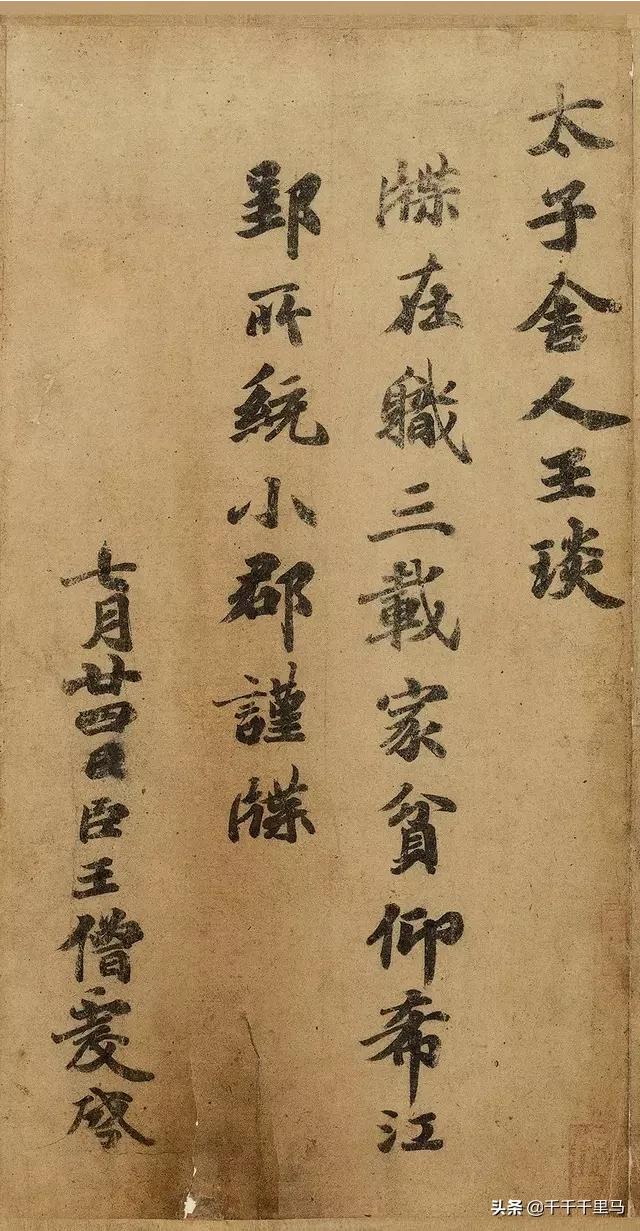 太子舍人王琰
牒在軄三載家貧仰希江
郢所統小郡謹牒
七月廿四日臣王僧虔啓
头条 @千千千里马